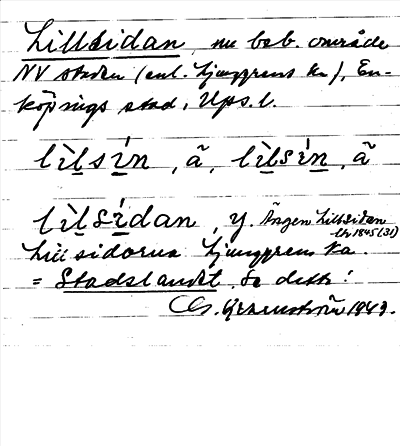 Lillsidan, nu beb. område
NV staden (enl. Ljunggrens ka), En-
köpings stad, Ups. l.
lìlsín, ã, lìlsín, ã
lìlsídan, y. Ängen Lillsidan
lh 1845 (31)
Lillsidorna Ljunggrens ka.
= Stadslandet. Se detta!
1949.